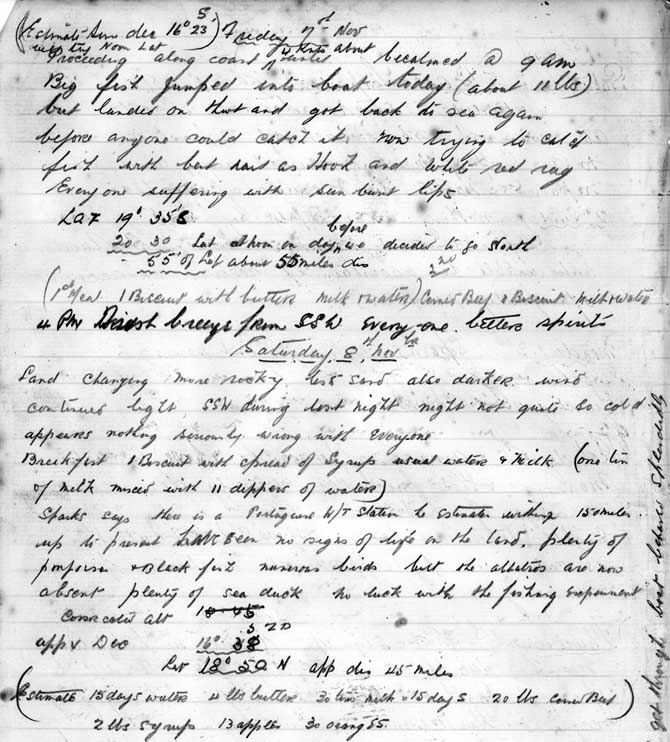 (Estimate Sun dec 16° 23' S) Friday 7th Nov
Proceeding along coast about becalmed @ 9 am
Big fish jumped into boat today (about 11 lbs)
but landed on thwart and got back to sea again
before anyone could catch it now trying to catch
fish with bent nail as Hook and white red rag
Everyone suffering with sun burnt lips
Lat 19° 35' S before
20 30 Lat at noon on day we decided to go North
55' of Lat about 55 miles dis
(1st Meal 1 Biscuit with butter milk & water) 2nd Corned Beef & Biscuit milk & water
4 PM breeze from SSW Every one better spirits
Saturday, 8th, Nov
Land changing more rocky less sand also darker wind
continued light SSW during last night night not quite so cold
appears nothing seriously wrong with everyone
Breakfast 1 Biscuit with spread of Syrup usual water & Milk (one tin
of milk mixed with 11 dippers of water)
Sparks says there is a Portuguese W/T Station he estimates within 150 miles.
up to present have been no signs of life on the land. plenty of
porpoise & Black fish numerous birds but the albatros are now
absent plenty of sea duck no luck with the fishing experiment
Corrected alt 18 45
S ZD
appx Dec 16° 38
Lat 18° 50 N app dis 45 miles
(Estimate 15 days water 4 lbs butter 30 tins milk = 15 days 20 lbs corned Beef)
2 lbs syrup 13 apples 30 oranges.
got through boat behaves splendidly